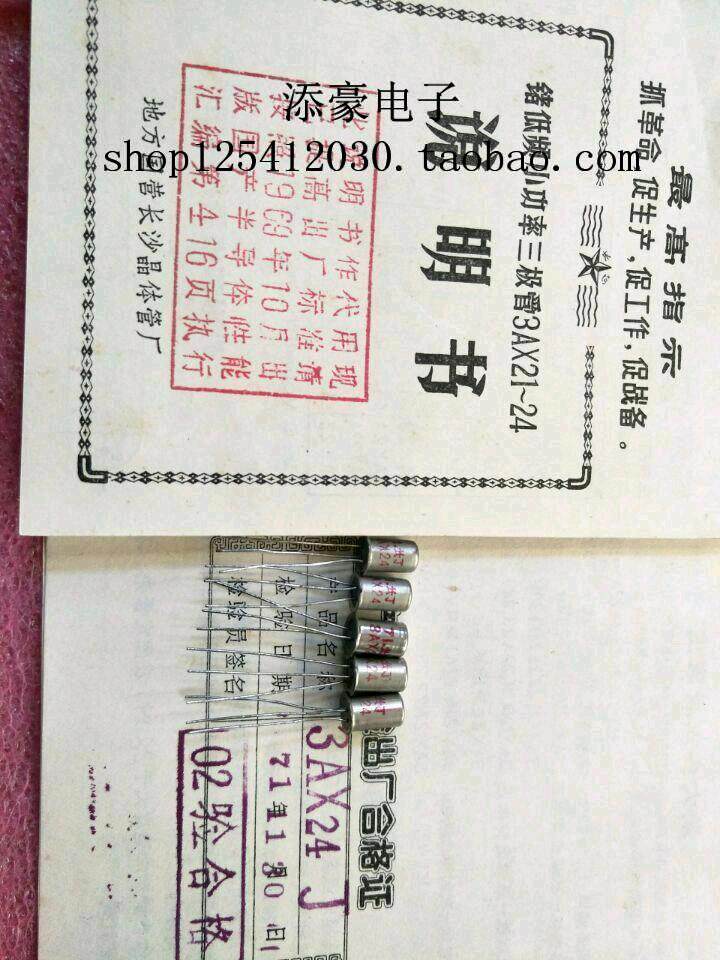 添豪电子
shop125412030.taobao.com
最高指示
抓革命,促生产,促工作,促战备。
锗低频小功率三极管3AX21~24
说明书
说明书作代用现
高出厂标准请
1969年10月出
版国产半导体性能
汇编第416页执行
地方国营长沙晶体管厂
出厂合格证
品名称 3AX24 J
检验日期 71年1月30日
检验员签名 02验合格
X24
X24
3AX
24
24